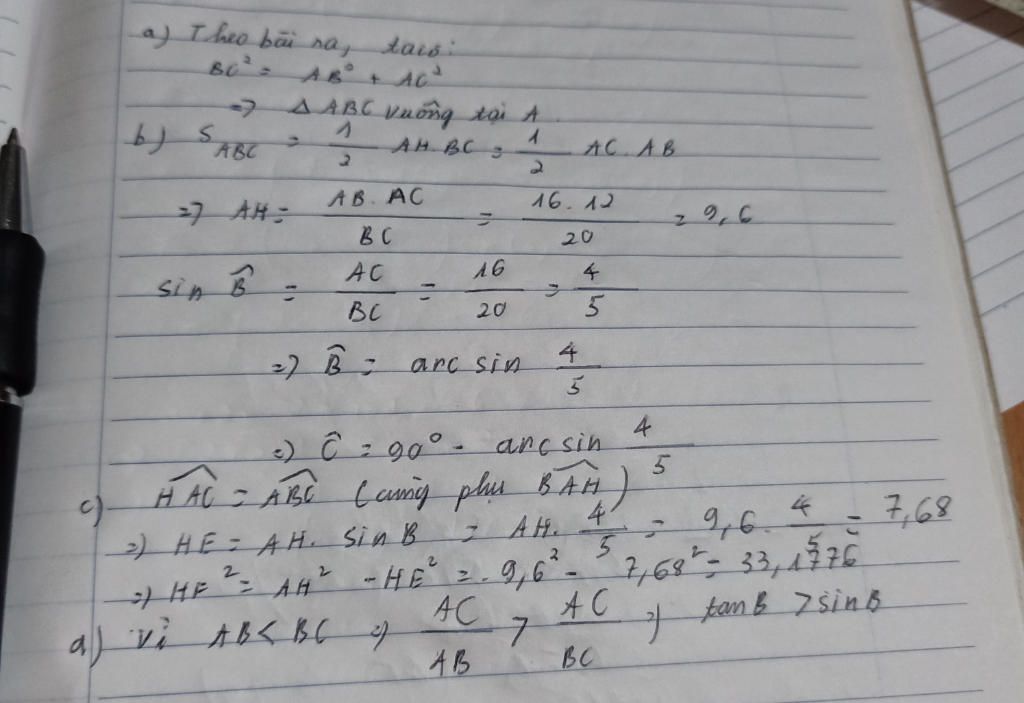 a) Theo bài ra, ta có:
BC² = AB² + AC²
=> Δ ABC vuông tại A.
b) S_ABC = 1/2 AH.BC = 1/2 AC.AB
=> AH = AB.AC/BC = 16.12/20 = 9,6
sin B̂ = AC/BC = 16/20 = 4/5
=> B̂ = arc sin 4/5
=> Ĉ = 90° - arc sin 4/5
c) \widehat{HAC} = \widehat{ABC} (cùng phụ \widehat{BAH})
=> HE = AH. sin B = AH. 4/5 = 9,6. 4/5 = 7,68
=> HF² = AH² - HE² = 9,6² - 7,68² = 33,1776
d) Vì AB < BC => AC/AB > AC/BC => tan B > sin B